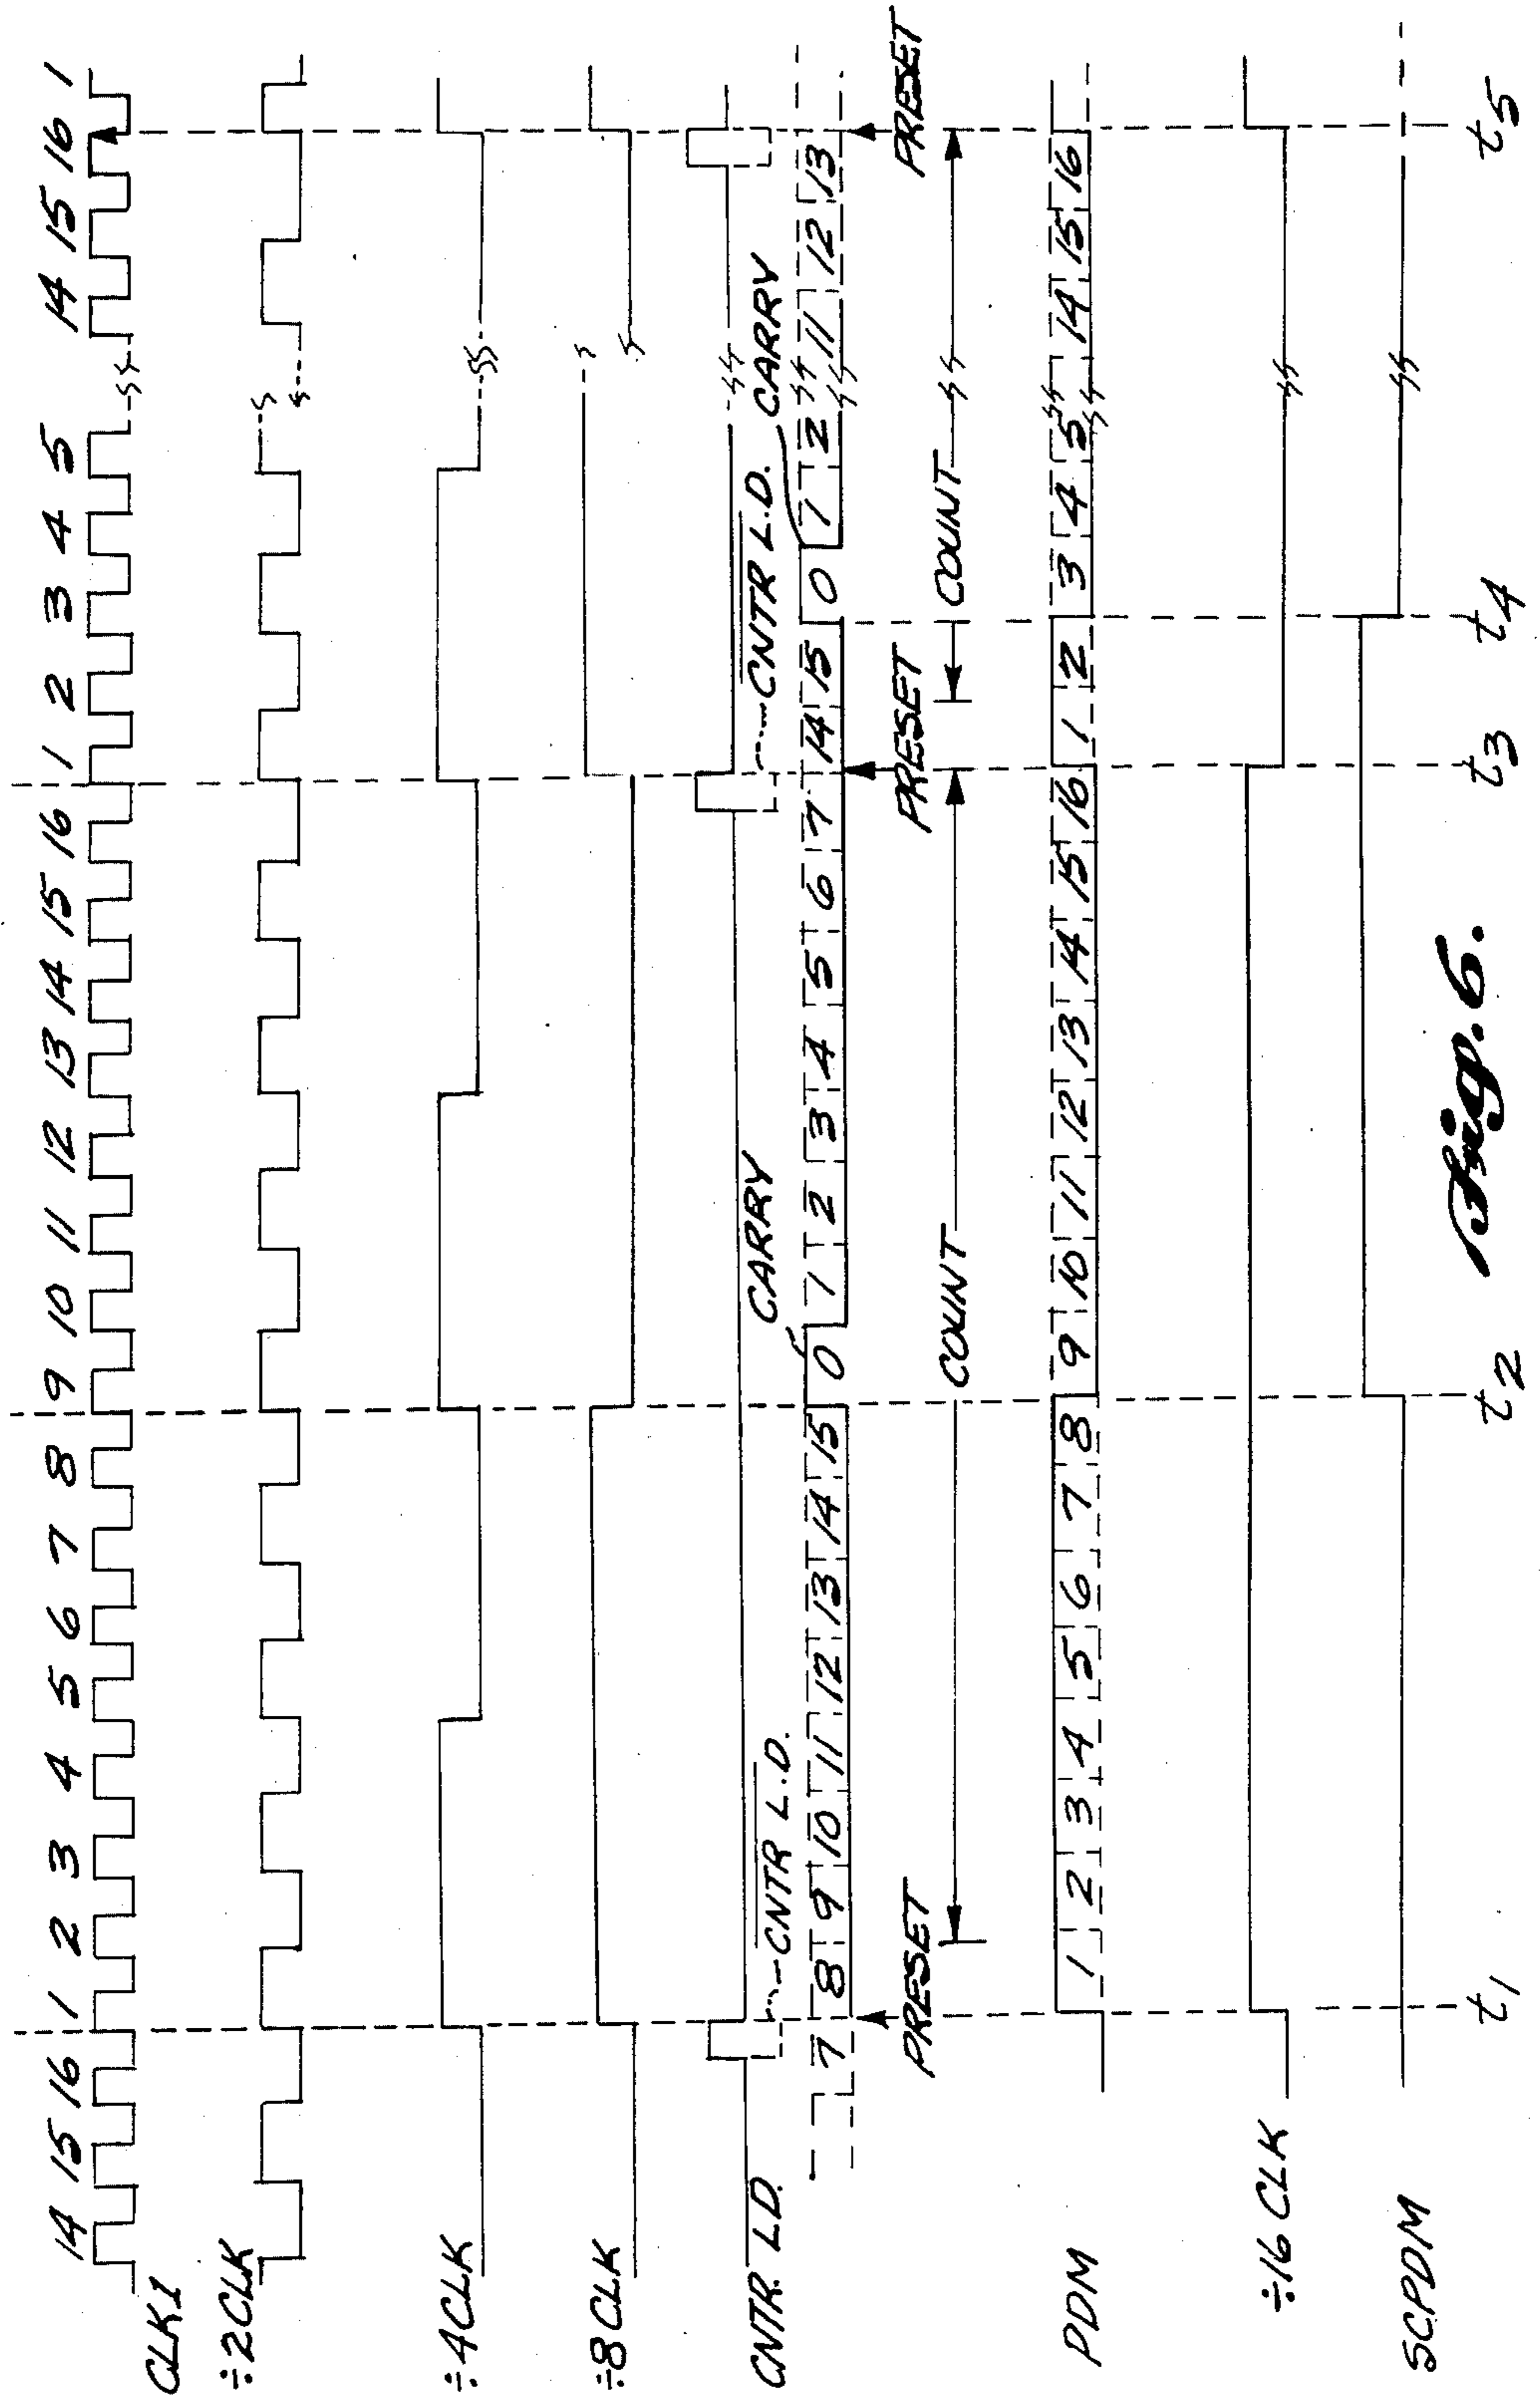 14 15 16 1 2 3 4 5 6 7 8 9 10 11 12 13 14 15 16 1 2 3 4 5 14 15 16 1
CLK1
÷2CLK
÷4CLK
÷8CLK
CNTR. L.D.
CNTR L.D.
CARRY
CNTR L.D.
CARRY
7 8 9 10 11 12 13 14 15 0 1 2 3 4 5 6 7 14 15 0 1 2 11 12 13
PRESET
PRESET
PRESET
COUNT
COUNT
PDM
1 2 3 4 5 6 7 8 9 10 11 12 13 14 15 16 1 2 3 4 5 14 15 16
÷16 CLK
SCPDM
t1 t2 t3 t4 t5
Fig. 6.